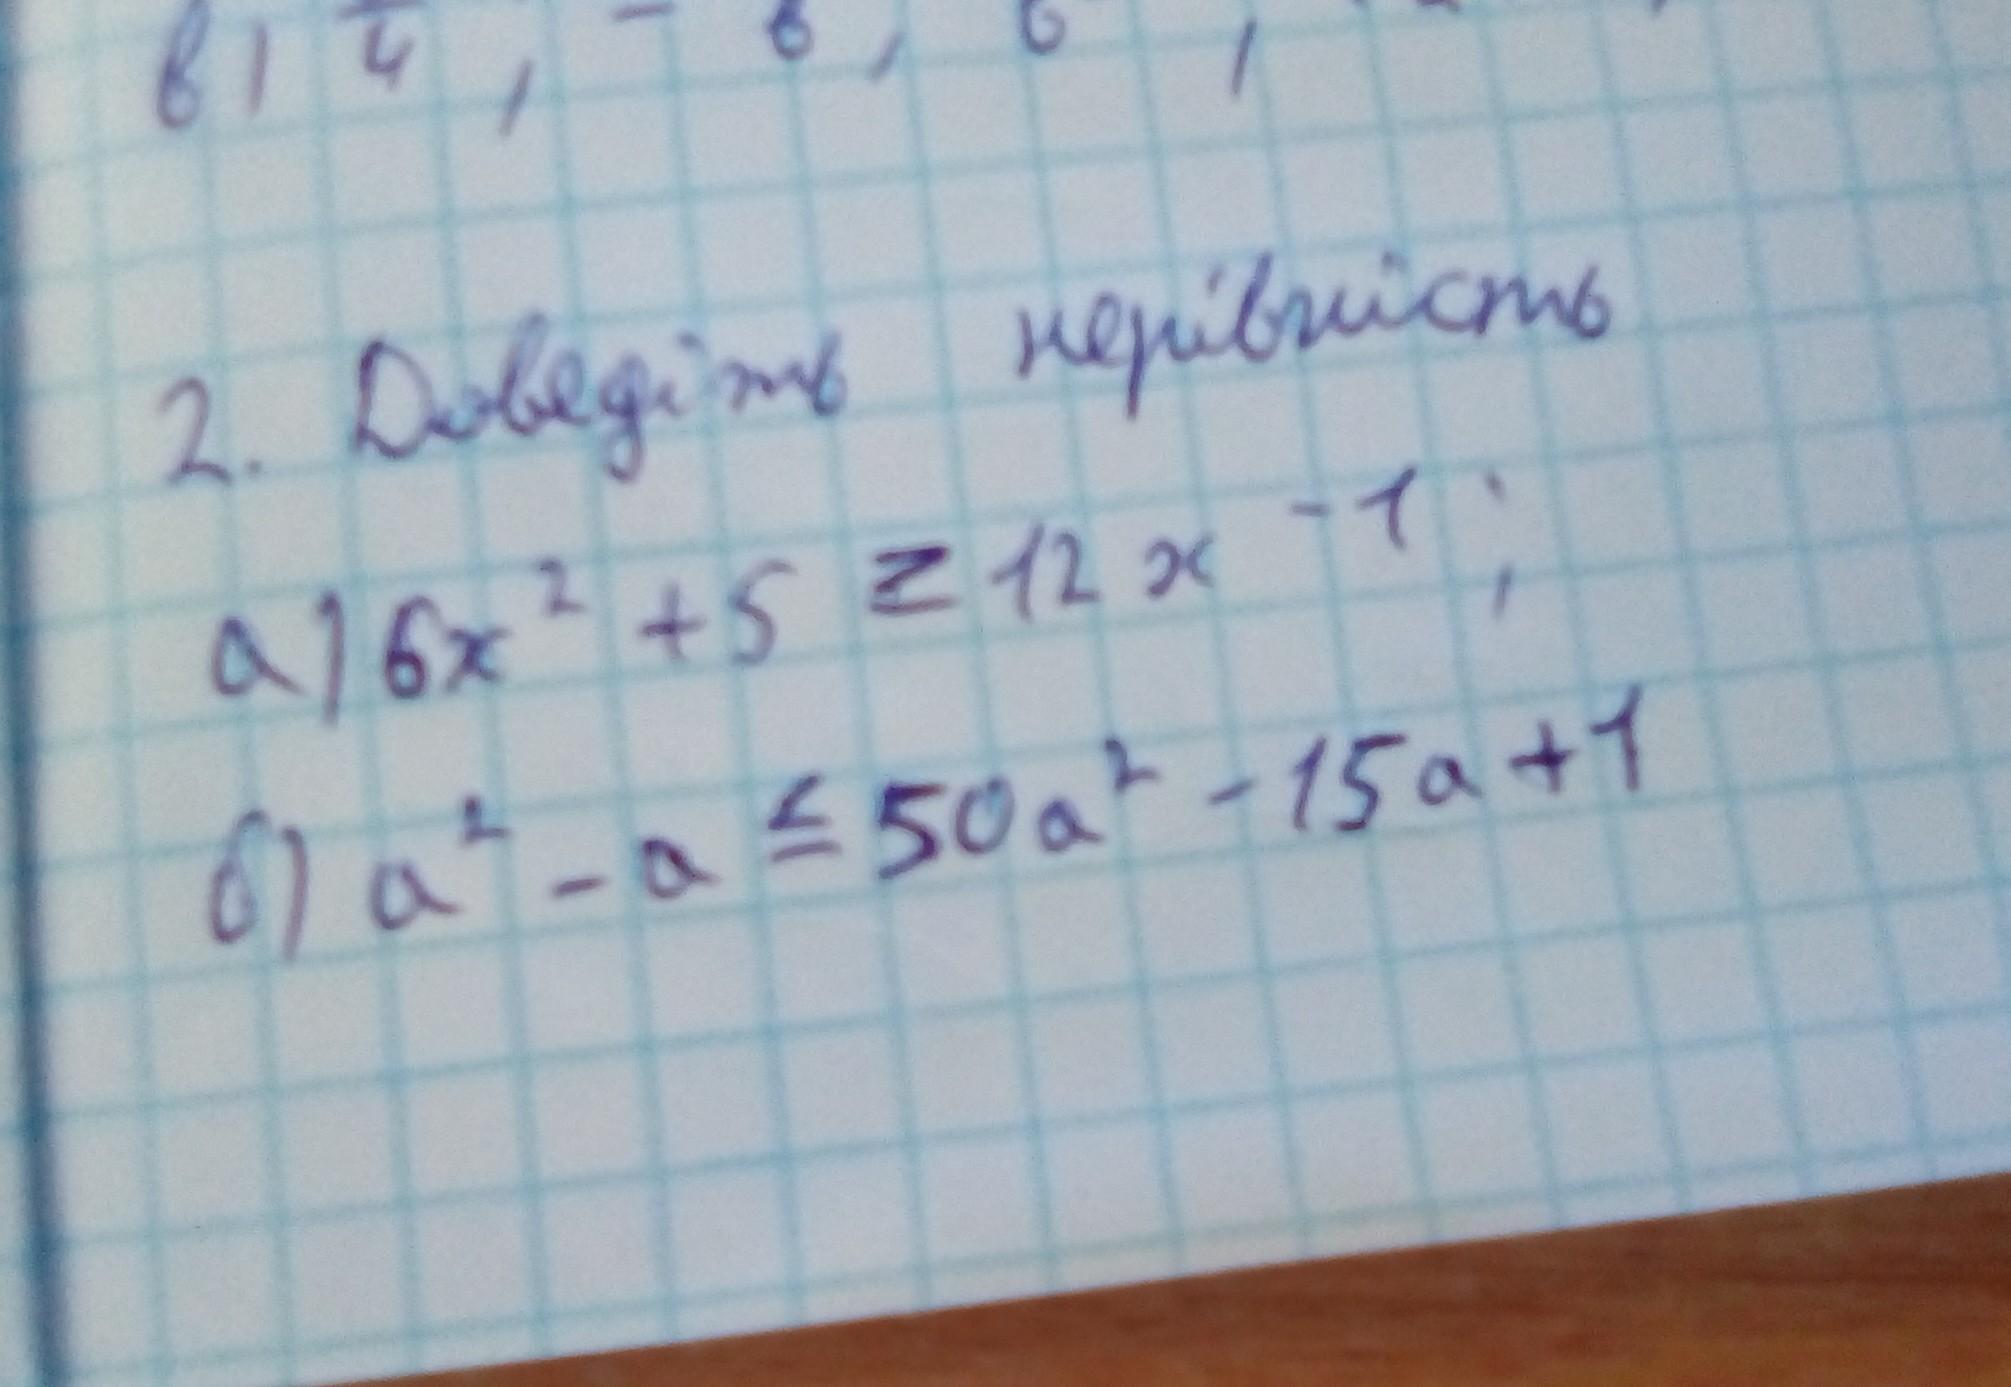 в) 4, - 6, 6,
2. Доведіть нерівність
а) 6x² + 5 ≥ 12x - 1;
б) a² - a ≤ 50a² - 15a + 1